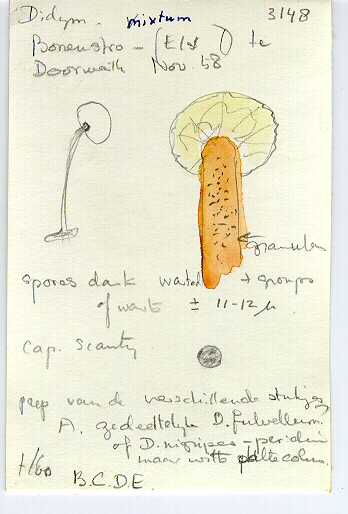 Didym. mixtum 3148
Bonenstro - (Elst) te
Doorwerth Nov. 58
granulen
spores dark warted + groups
of warts ± 11-12 µ
cap. scanty
prep van de verschillende
A. gedeeltelijk D. fulvellum.
of D. nigripes - peridium
maar witte
B.C.D.E.